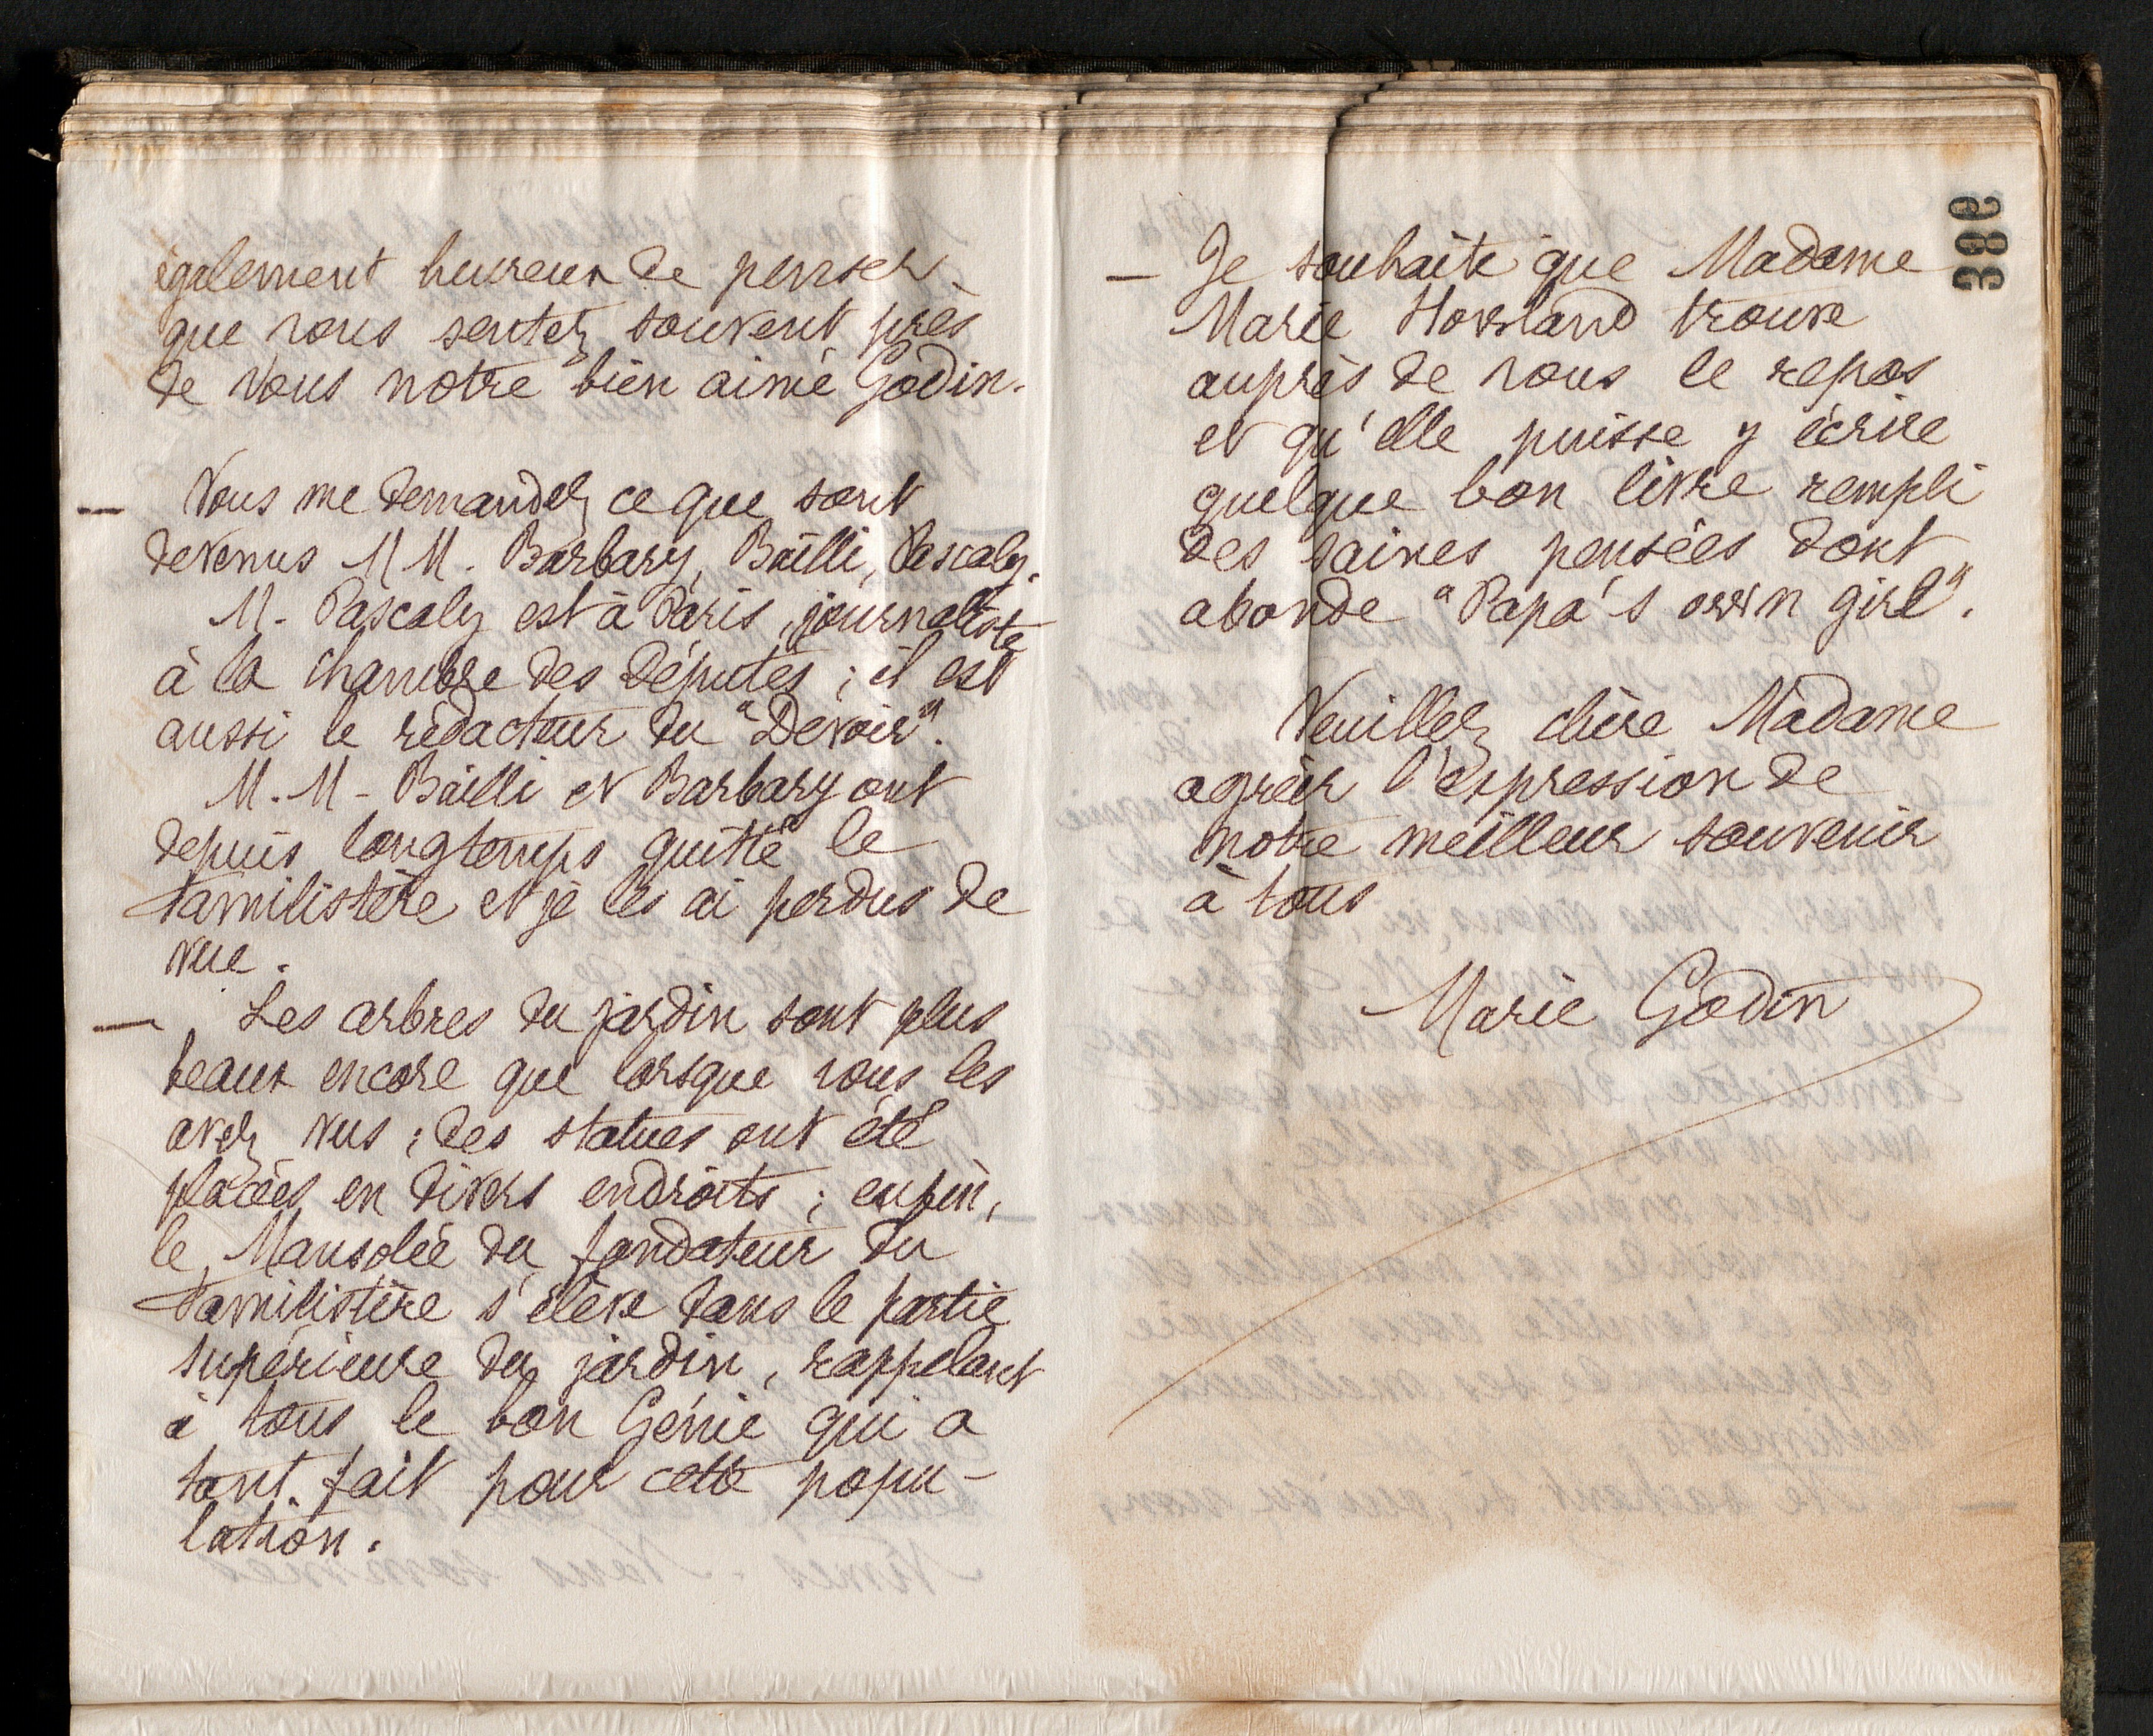 également heureux de penser
que vous sentez souvent près
de Vous notre bien aimé Godin.
— Vous me demandez ce que sont
devenus MM. Barbary, Bailli, Pascaly.
M. Pascaly est à Paris, journaliste
à la chambre des Députés ; il est
aussi le rédacteur du "Devoir".
M. M - Bailli et Barbary ont
depuis longtemps quitté le
Familistère et je les ai perdus de
vue.
— Les arbres du jardin sont plus
beaux encore que lorsque vous les
avez vus ; des statues ont été
placées en divers endroits ; enfin,
le Mausolée du fondateur du
Familistère s'élève dans le partie
supérieure du jardin, rappelant
à tous le bon Génie qui a
tant fait pour cette popu-
lation.
386
— Je souhaite que Madame
Marie Howland trouve
auprès de vous le repos
et qu'elle puisse y écrire
quelque bon livre rempli
des saines pensées dont
abonde "Papa's own girl".
Veuillez chère Madame
agréer l'expression de
notre meilleur souvenir
à tous
Marie Godin